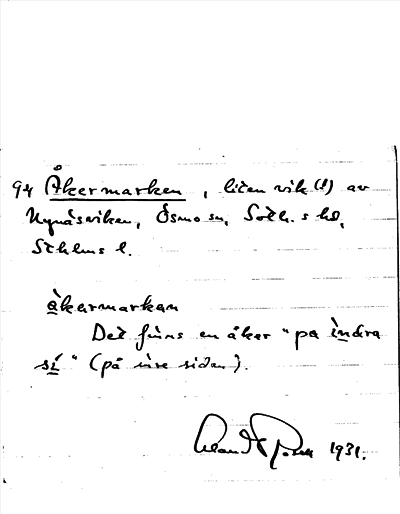 94 Åkermarken, liten vik (!) av
Nynäsviken, Ösmo sn, Soth. s hd,
Sthlms l.
åkermarkan
Det finns en åker "på indra
si" (på inre sidan).
1931.